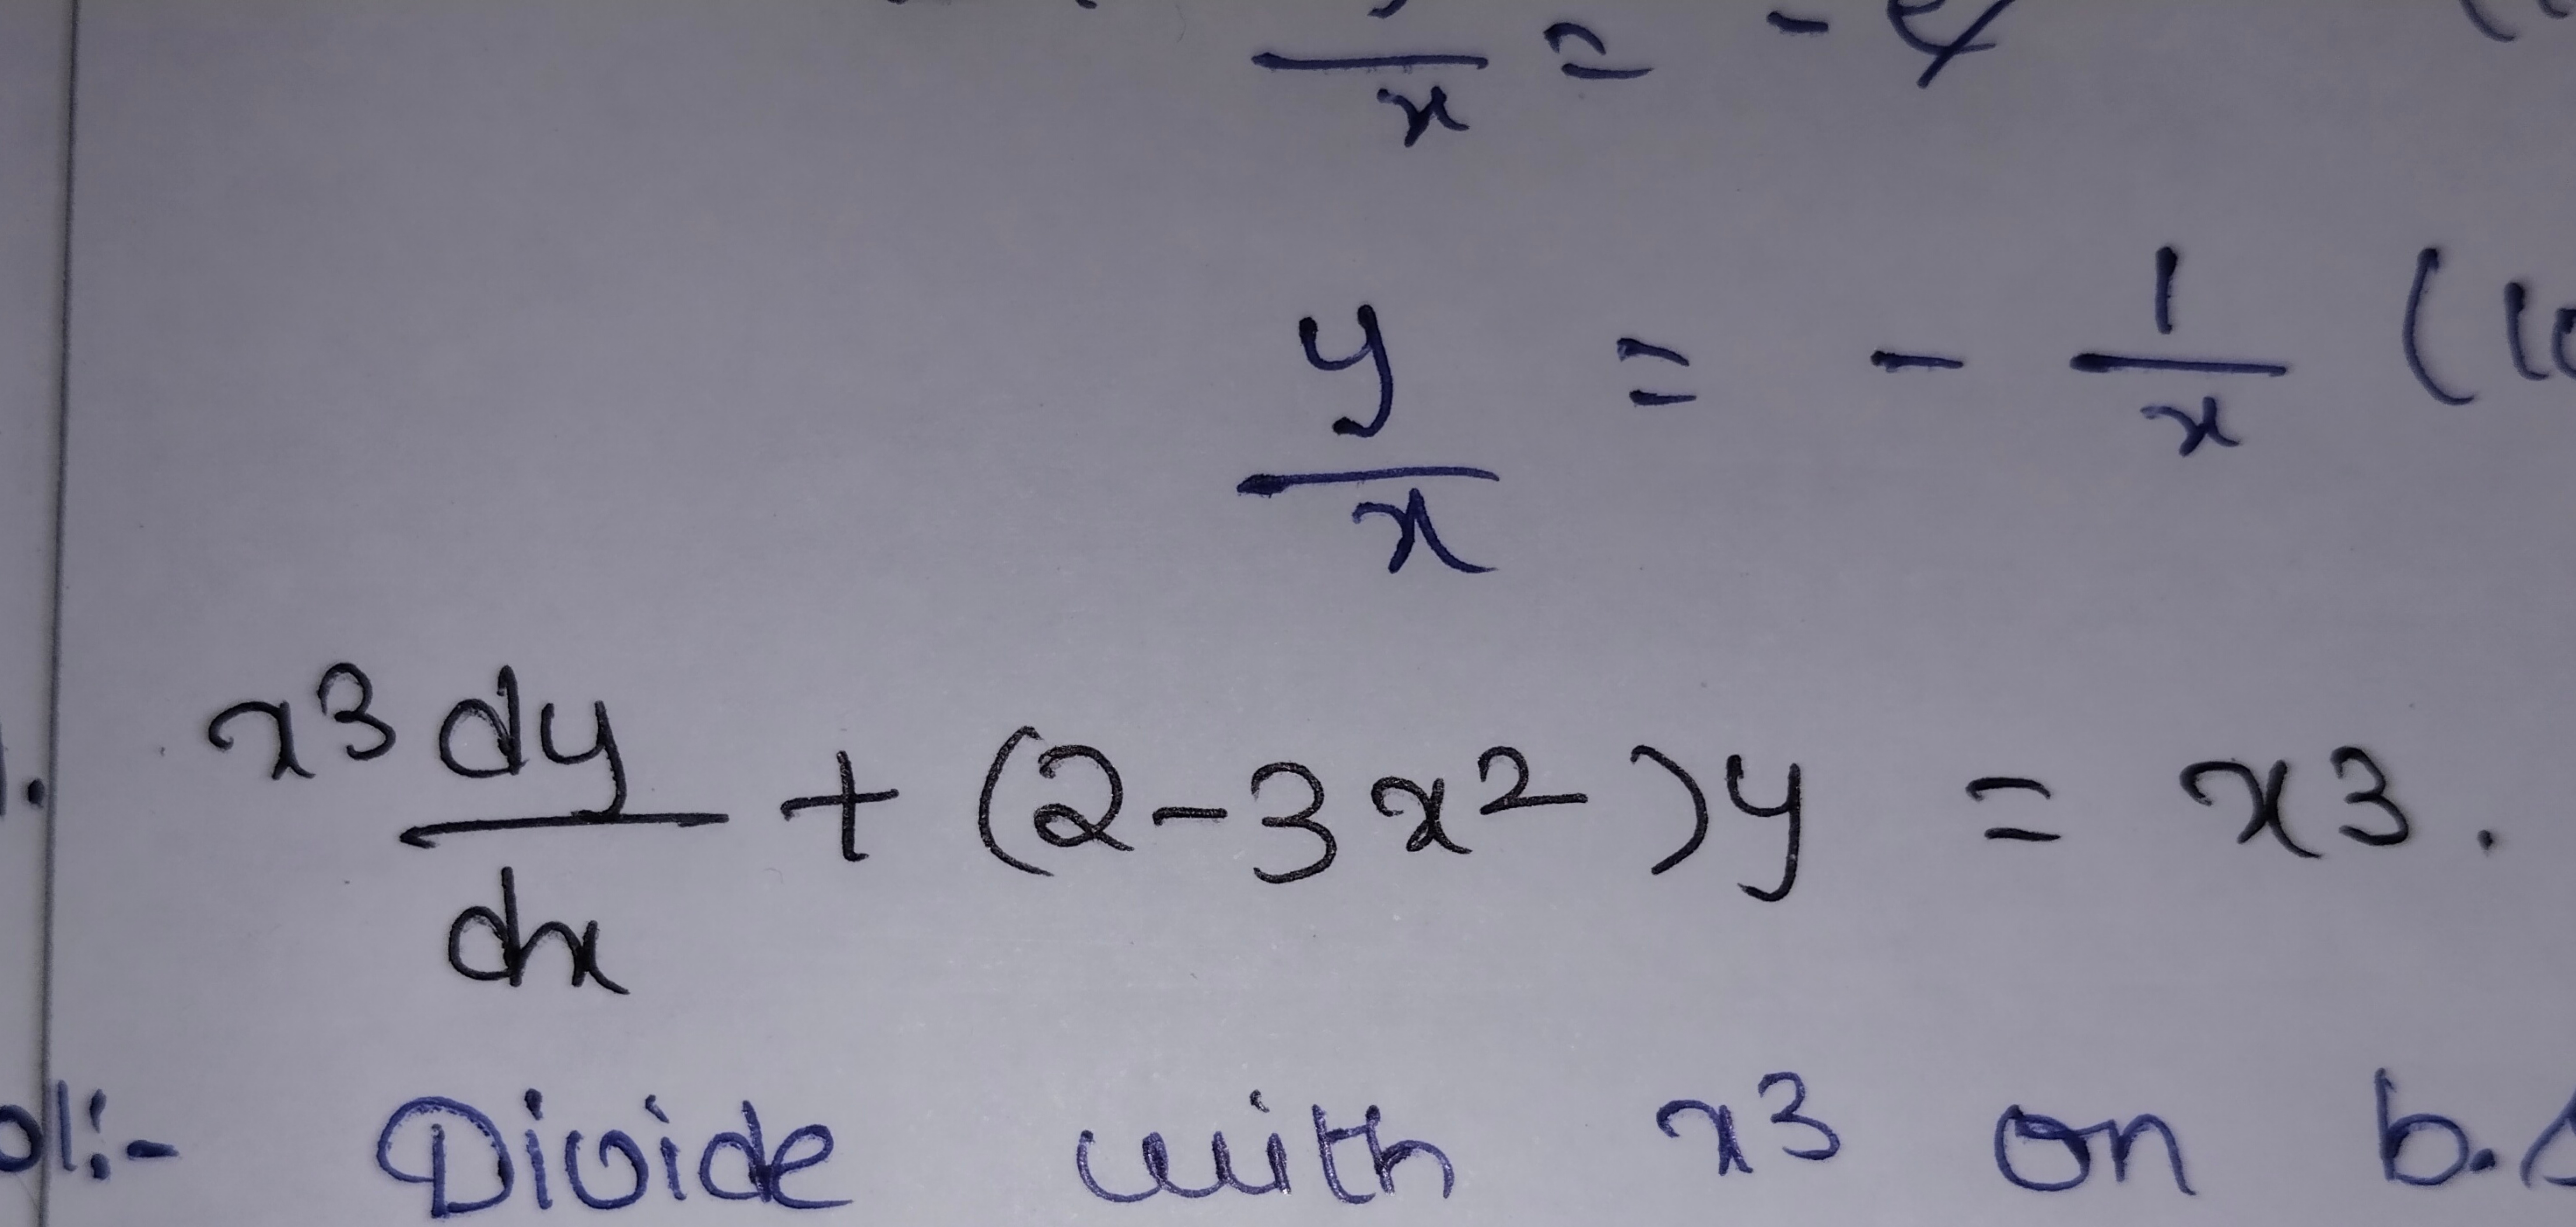 x = -
y/x = - 1/x (
x³ dy/dx + (2-3x²)y = x3.
Divide with x3 on